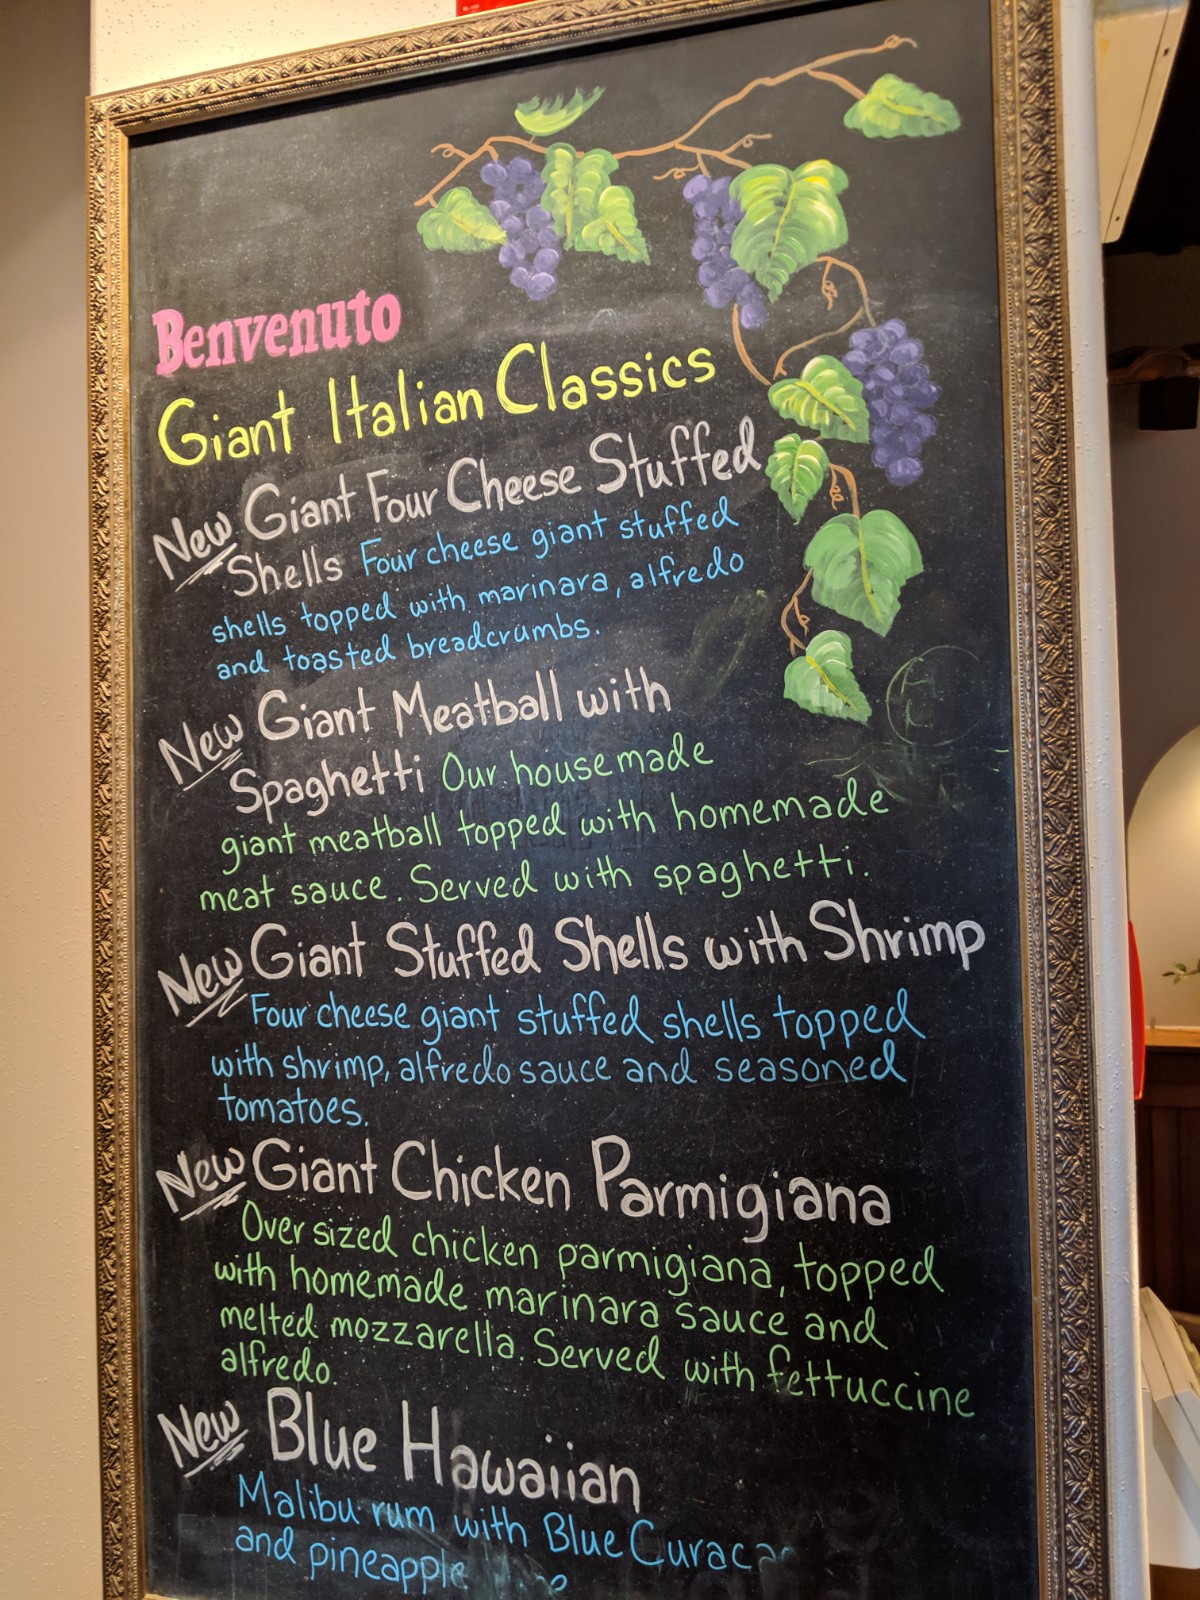 Benvenuto
Giant Italian Classics
New Giant Four Cheese Stuffed
Shells Four cheese giant stuffed
shells topped with marinara, alfredo
and toasted breadcrumbs.
New Giant Meatball with
Spaghetti Our housemade
giant meatball topped with homemade
meat sauce. Served with spaghetti.
New Giant Stuffed Shells with Shrimp
Four cheese giant stuffed shells topped
with shrimp, alfredo sauce and seasoned
tomatoes.
New Giant Chicken Parmigiana
Over sized chicken parmigiana, topped
with homemade marinara sauce and
melted mozzarella. Served with fettuccine
alfredo.
New Blue Hawaiian
Malibu rum with Blue
and pineapple